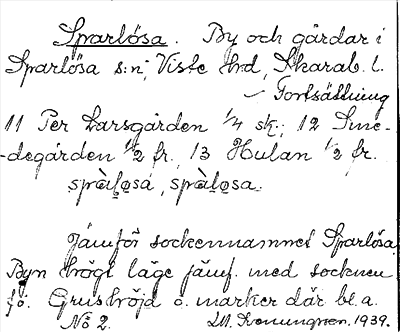 Sparlösa. By och gårdar i
Sparlösa s:n, Viste hrd, Skarab. l.
— Fortsättning
11 Per Larsgården 1/4 sk.; 12 Sme-
-degården 1/2 fr., 13 Hulan 1/2 fr.
Jämför sockennamnet Sparlösa.
Byn högt läge jämf. med socknen
fö. Grushöjd o. marker där bl. a.
No 2.
1939.